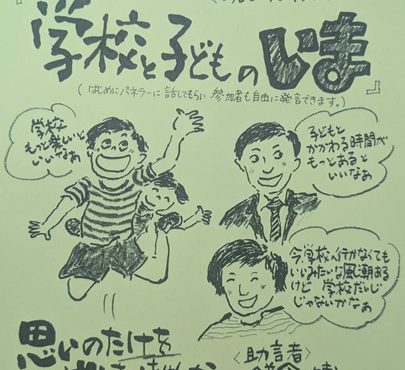 『学校と子どものいま』
(はじめにパネラーに話してもらい 参加者も自由に発言できます。)
学校
もっと楽しいと
いいなぁ
子どもと
かかわる時間が
もっとあると
いいなぁ
今学校へ行かなくても
いいみたいな風潮ある
けど 学校だいじ
じゃないかなぁ
思いのたけを
〈助言者〉